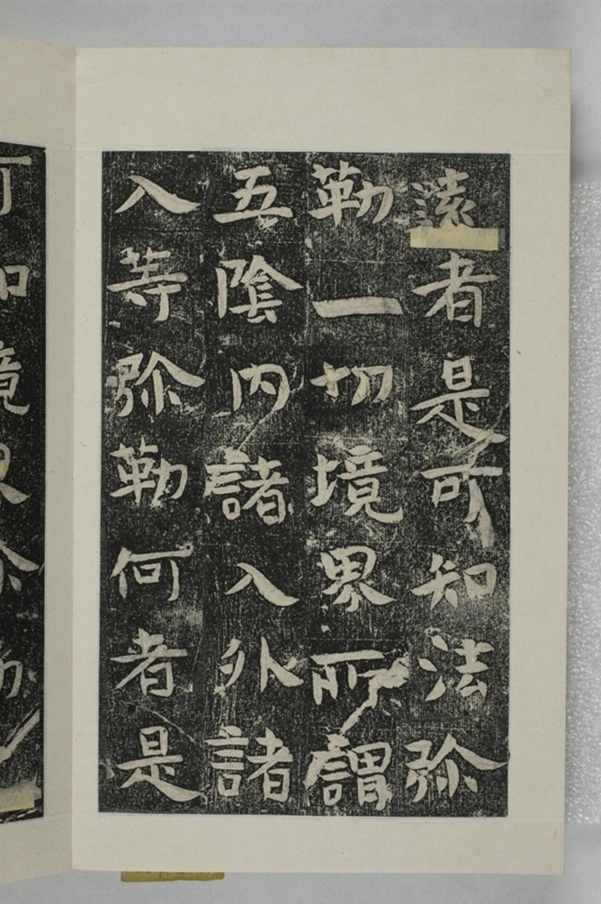 遠者是可知法弥
勒一切境界所謂
五陰内諸入外諸
入等弥勒何者是
可知境界弥勒